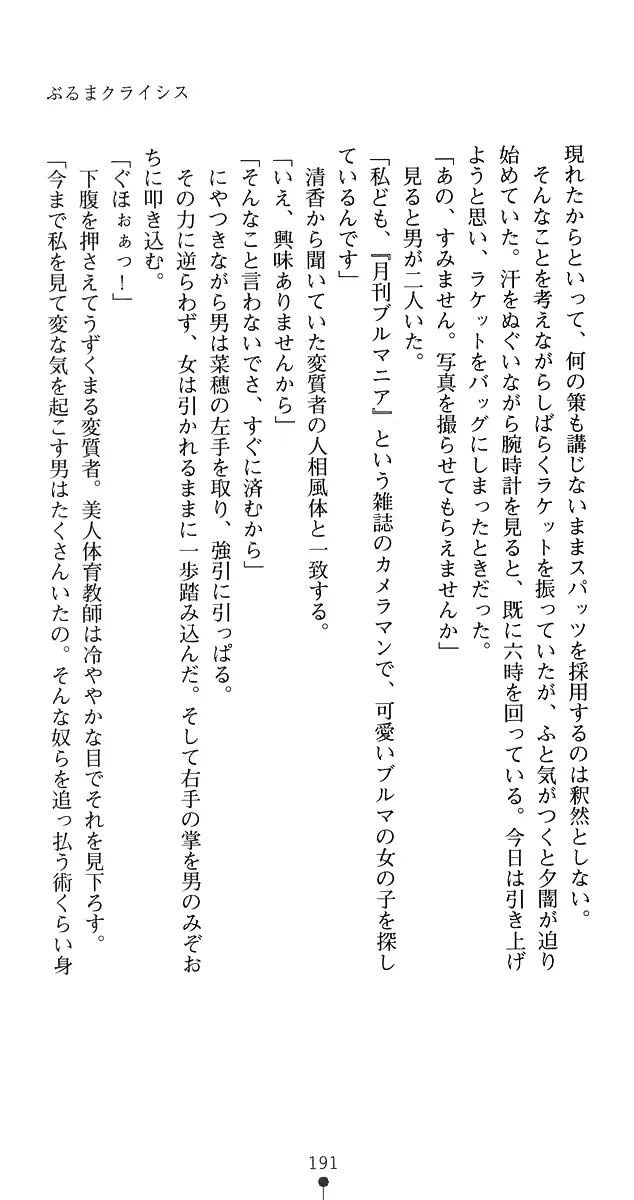 ぶるまクライシス
現れたからといって、何の策も講じないままスパッツを採用するのは釈然としない。
そんなことを考えながらしばらくラケットを振っていたが、ふと気がつくと夕闇が迫り
始めていた。汗をぬぐいながら腕時計を見ると、既に六時を回っている。今日は引き上げ
ようと思い、ラケットをバッグにしまったときだった。
「あの、すみません。写真を撮らせてもらえませんか」
見ると男が二人いた。
「私ども、『月刊ブルマニア』という雑誌のカメラマンで、可愛いブルマの女の子を探し
ているんです」
清香から聞いていた変質者の人相風体と一致する。
「いえ、興味ありませんから」
「そんなこと言わないでさ、すぐに済むから」
にやつきながら男は菜穂の左手を取り、強引に引っぱる。
その力に逆らわず、女は引かれるままに一歩踏み込んだ。そして右手の掌を男のみぞお
ちに叩き込む。
「ぐほぉぁっ！」
下腹を押さえてうずくまる変質者。美人体育教師は冷ややかな目でそれを見下ろす。
「今まで私を見て変な気を起こす男はたくさんいたの。そんな奴らを追っ払う術くらい身
191